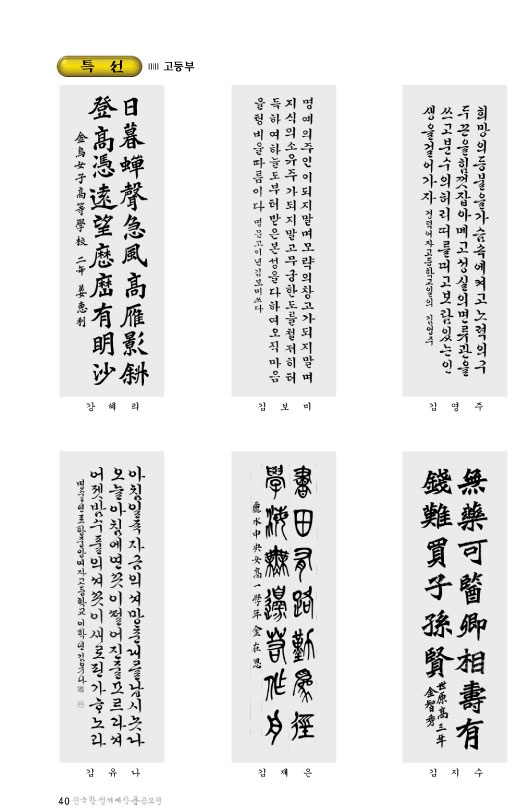 특 선 고등부
日暮蟬聲急風高雁影斜
登高憑遠望歷歷有明沙
金烏女子高等學校 二年 姜惠利
강 혜 리
명예의주인이되지말며모략의창고가되지말며
지식의소유주가되지말고무궁한도를철저히터
득하여하늘로부터받은본성을다하여오직마음
을텅비울따름이다
김보미쓰다
김 보 미
희망의등불을가슴속에켜고노력의구
두끈을힘껏잡아매고성실의면류관을
쓰고분수의허리띠를띠고보람있는인
생을걸어가자 김영주
김 영 주
오늘아침에연꽃이떨어진줄모르라
어젯밤수풀의 꽃이새로핀가하노라
김 유 나
書田有路勤爲徑
學海無邊苦作舟
麗水中央女高一學年 金在恩
김 재 은
無藥可醫卿相壽有
錢難買子孫賢
世原高三年
金智秀
김 지 수
40 전국학생서예상품공모전